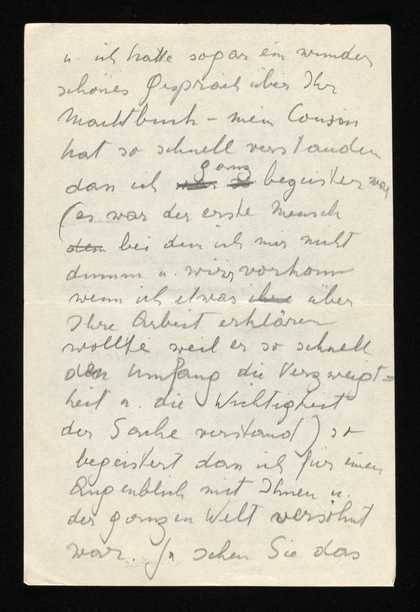 u. ich hatte sogar ein wunder
schönes Gespräch über Ihr
Machtbuch – mein Cousin
hat so schnell verstanden
dass ich ganz begeistert war
(es war der erste Mensch
bei dem ich mir nicht
dumm u. wirr vorkam
wenn ich etwas über
Ihre Arbeit erklären
wollte weil er so schnell
den Umfang die Verzweigt-
heit u. die Wichtigkeit
der Sache verstand) so
begeistert dass ich für einen
Augenblick mit Ihnen u.
der ganzen Welt versöhnt
war. Ja sehen Sie das